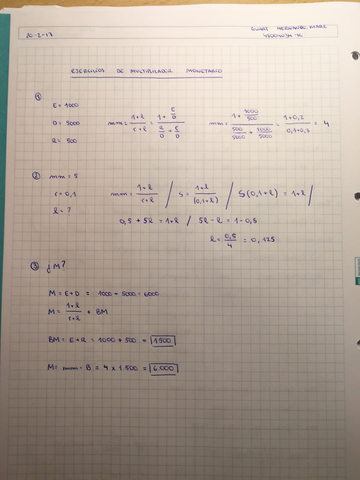 20-2-17
EJERCICIOS DE MULTIPLICADOR MONETARIO
①
E = 1000
D = 5000
R = 500
mm = 1+l / r+l = 1 + E/D / R/D + E/D
mm = 1 + 1000/500 / 500/5000 + 1000/5000 = 1+0,2 / 0,1+0,2 = 4
②
mm = 5
r = 0,1
l = ?
mm = 1+l / r+l / 5 = 1+l / (0,1+l) / 5(0,1+l) = 1+l /
0,5 + 5l = 1+l / 5l - l = 1-0,5
l = 0,5 / 4 = 0,125
③ ¿M?
M = E+D = 1000 + 5000 = 6000
M = 1+l / r+l * BM
BM = E+R = 1000 + 500 = 1.500
M = mm · B = 4 x 1.500 = 6.000